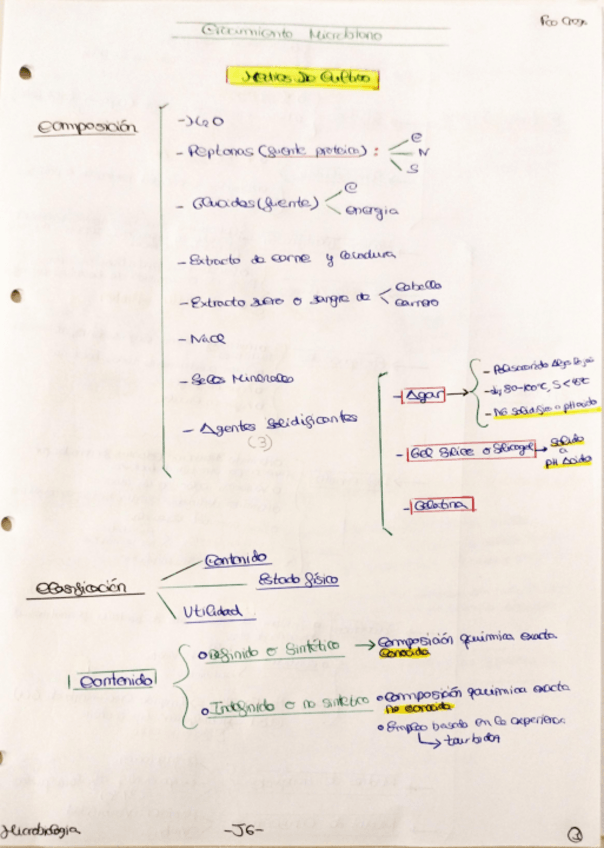 Crecimiento Microbiano
Medios De Cultivo
Composición
- H₂O
- Peptonas (fuente proteica) :
C
N
S
- Glúcidos (fuente)
C
energía
- Extracto de carne y levadura
- Extracto suero o sangre de
Caballo
Carnero
- NaCl
- Sales Minerales
- Agentes solidificantes
(3)
- Agar →
- Polisacárido Algas Rojas
- NO solidifica a pH ácido
- Gel Sílice o Silicagel → Sólido
a
pH Ácido
- Gelatina
Clasificación
Contenido
Estado físico
Utilidad
Contenido
Definido o Sintético → Composición química exacta
Conocida
Indefinido o no sintético
Composición química exacta
no conocida
Empleo basado en la experiencia
Microbiología
-J6-